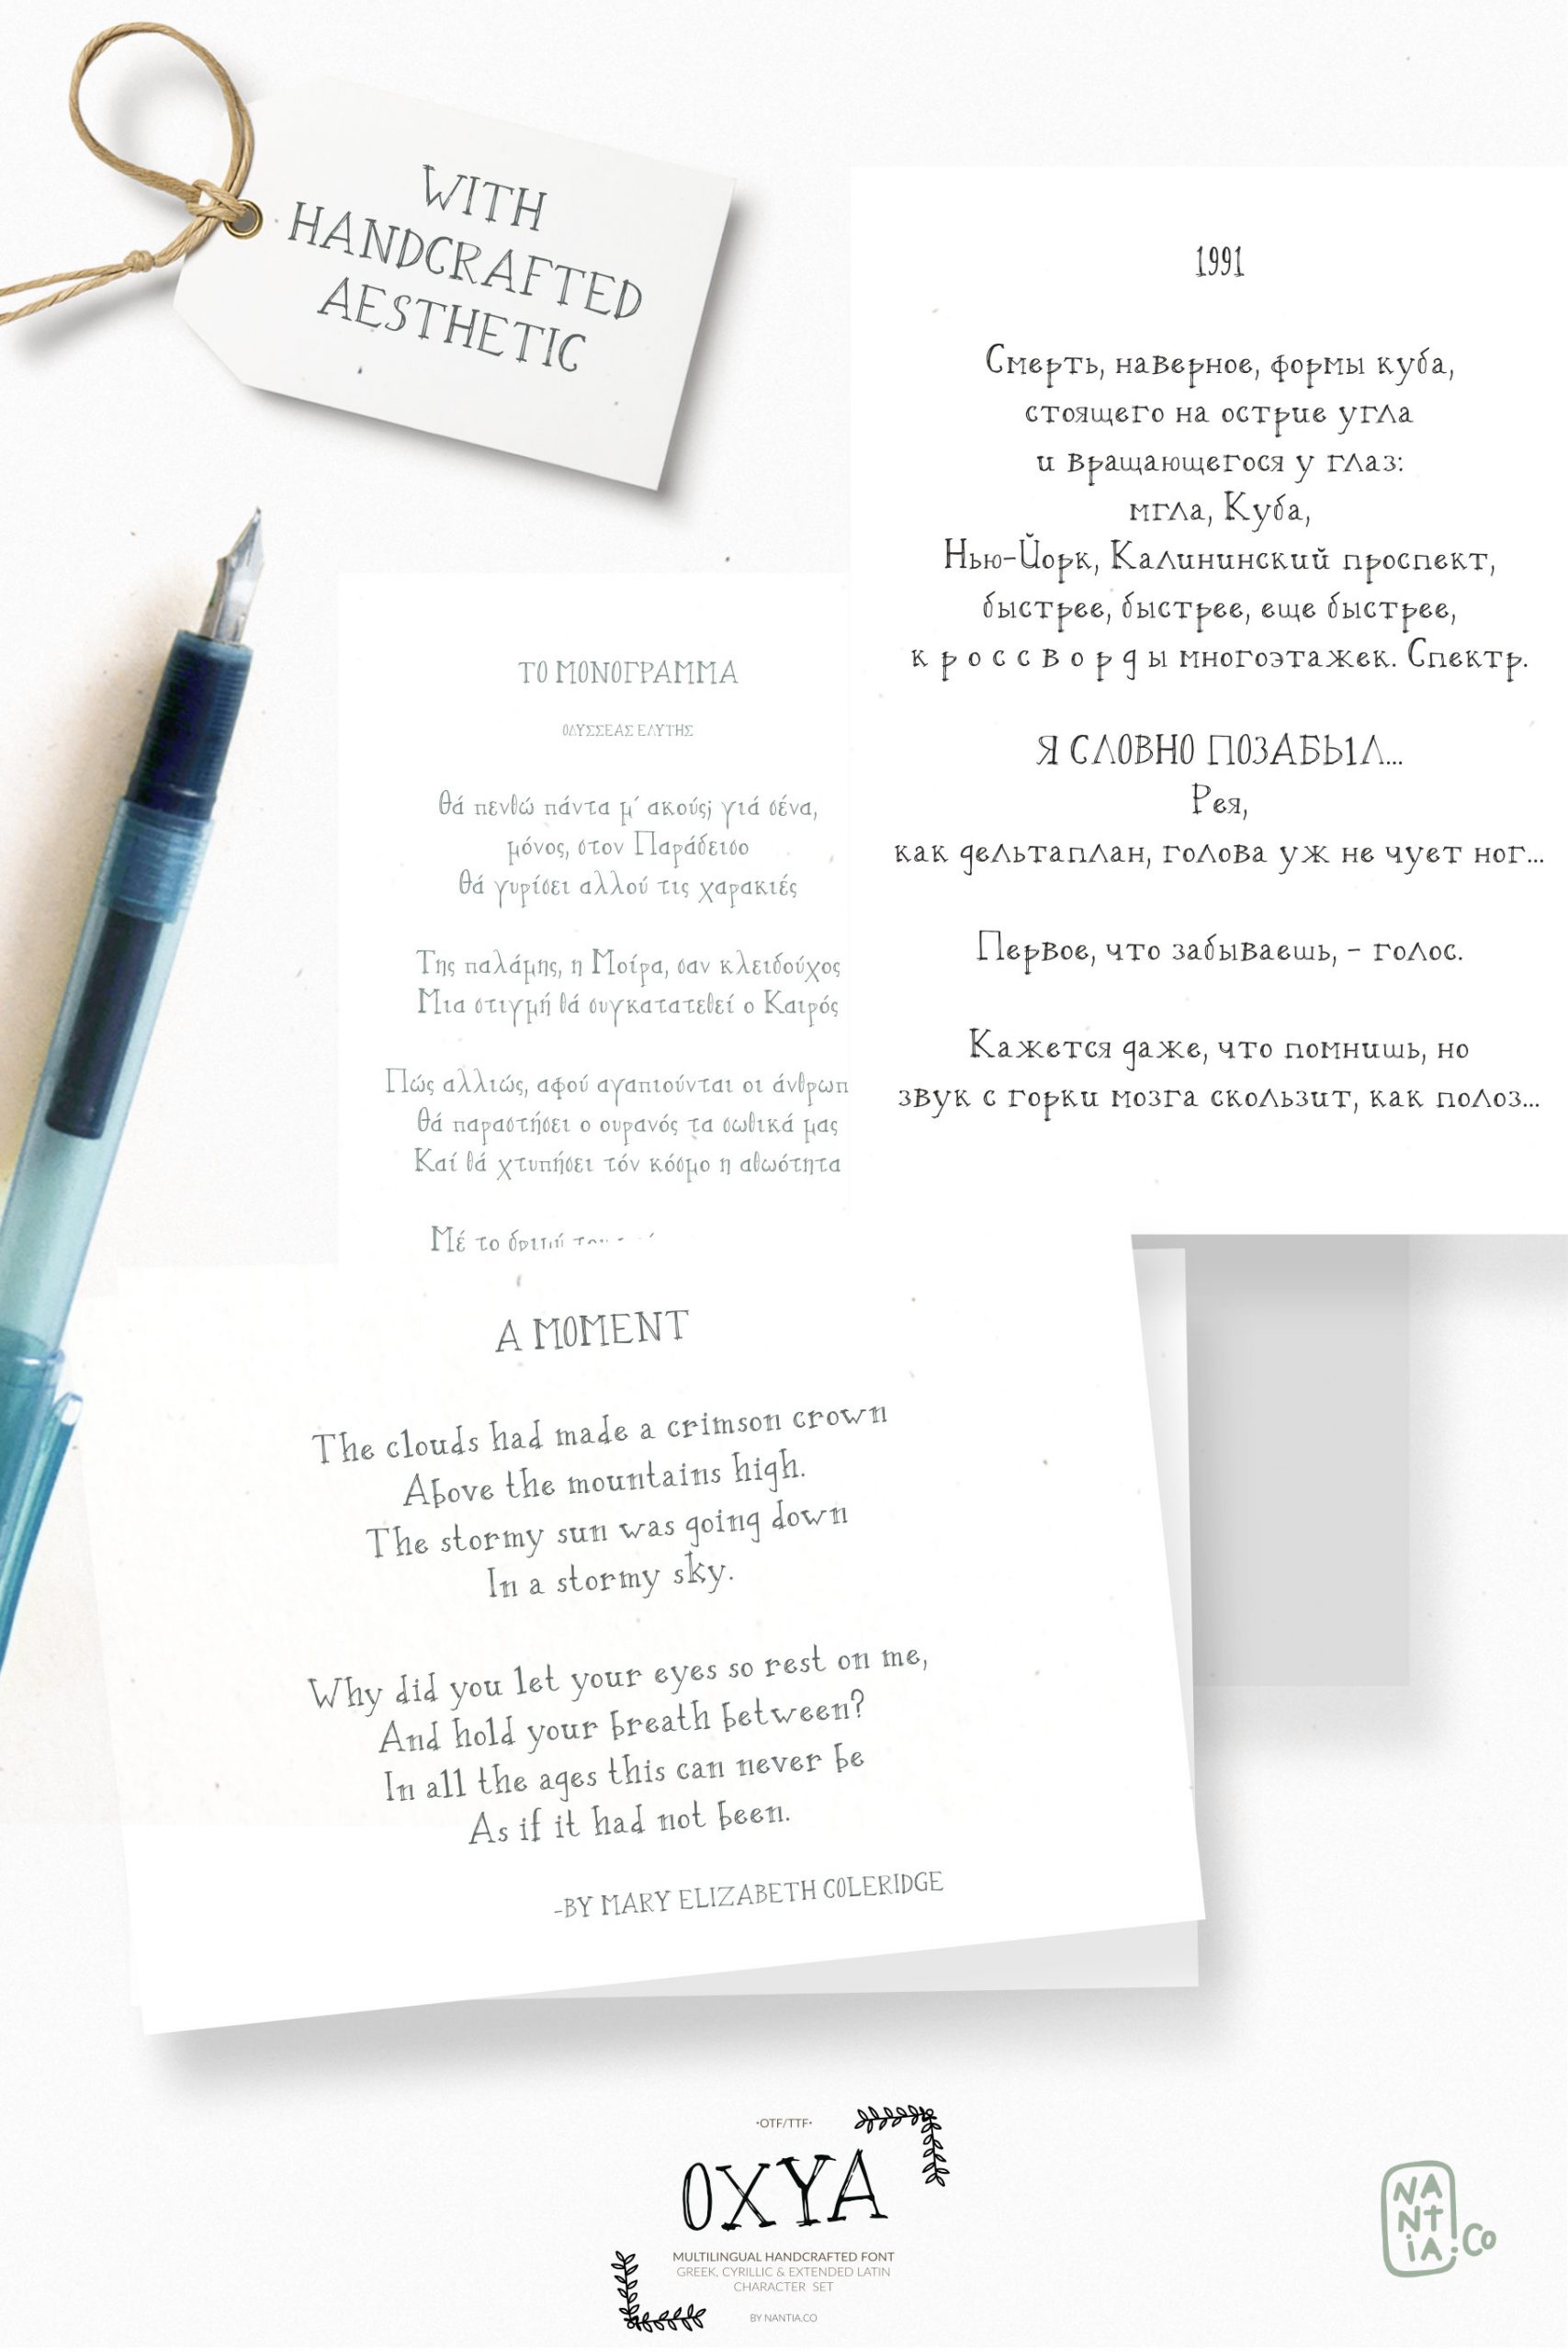 WITH
HANDCRAFTED
AESTHETIC
1991
Смерть, наверное, формы куба,
стоящего на острие угла
и вращающегося у глаз:
мгла, Куба,
Нью-Йорк, Калининский проспект,
быстрее, быстрее, еще быстрее,
к р о с с в о р д ы многоэтажек. Спектр.
Я СЛОВНО ПОЗАБЫЛ...
Рея,
как дельтаплан, голова уж не чует ног...
Первое, что забываешь, - голос.
Кажется даже, что помнишь, но
звук с горки мозга скользит, как полоз...
ΤΟ ΜΟΝΟΓΡΑΜΜΑ
ΟΔΥΣΣΕΑΣ ΕΛΥΤΗΣ
θά πενθώ πάντα μ΄ ακούς; γιά σένα,
μόνος, στον Παράδεισο
θά γυρίσει αλλού τις χαρακιές
Της παλάμης, η Μοίρα, σαν κλειδούχος
Μια στιγμή θά συγκατατεθεί ο Καιρός
Πώς αλλιώς, αφού αγαπιούνται οι άνθρωπ
θά παραστήσει ο ουρανός τα σωθικά μας
Καί θά χτυπήσει τόν κόσμο η αθωότητα
Μέ το δριμύ
A MOMENT
The clouds had made a crimson crown
Above the mountains high.
The stormy sun was going down
In a stormy sky.
Why did you let your eyes so rest on me,
And hold your breath between?
In all the ages this can never be
As if it had not been.
-BY MARY ELIZABETH COLERIDGE
·OTF/TTF·
OXYA
MULTILINGUAL HANDCRAFTED FONT
GREEK, CYRILLIC & EXTENDED LATIN
CHARACTER SET
BY NANTIA.CO
NANTIA.CO